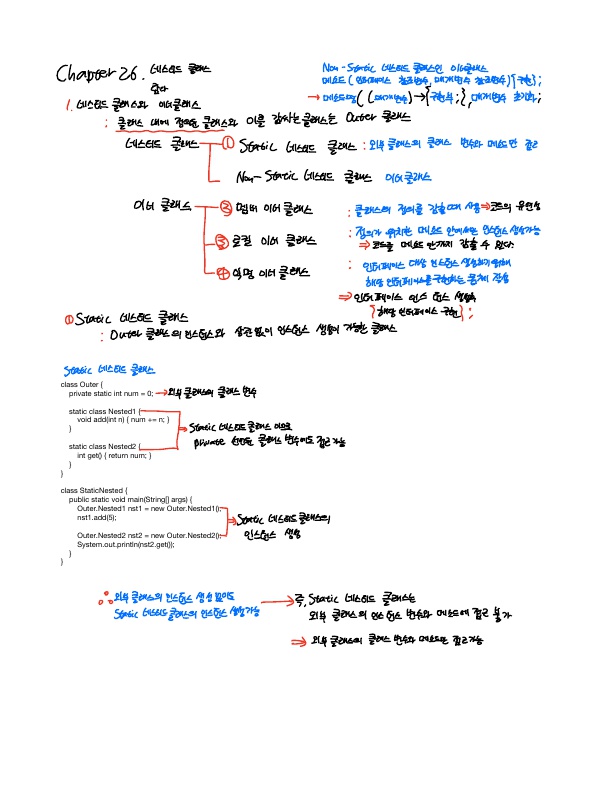 Chapter 26. 네스티드 클래스
Non-Static 네스티드 클래스인 이너클래스
메소드 (인터페이스 참조변수, 매개변수 참조변수) {구현};
→ 메소드명( (매개변수) → {구현부;}, 매개변수 초기화);
1. 네스티드 클래스와 이너클래스
: 클래스 내에 정의된 클래스와 이를 감싸는 클래스는 Outer 클래스
네스티드 클래스 ① Static 네스티드 클래스 : 외부 클래스의 클래스 변수와 메소드만 접근
Non-Static 네스티드 클래스 이너 클래스
이너 클래스 ② 멤버 이너 클래스 : 클래스의 정의를 감출 때 사용 ⇒ 코드의 유연성
③ 로컬 이너 클래스 : 정의가 위치한 메소드 안에서만 인스턴스 생성가능
⇒ 코드를 메소드 안까지 감출 수 있다.
④ 익명 이너 클래스 : 인터페이스 대상 인스턴스 생성하기 위해
해당 인터페이스를 구현하는 몸체 작성
⇒ 인터페이스 인스턴스 생성하
{해당 인터페이스 구현};
① Static 네스티드 클래스
: Outer 클래스의 인스턴스와 상관없이 인스턴스 생성이 가능한 클래스
Static 네스티드 클래스
class Outer {
private static int num = 0; → 외부 클래스의 클래스 변수
static class Nested1 {
void add(int n) { num += n; }
}
Static 네스티드 클래스 이므로
private 선언된 클래스 변수에도 접근가능
static class Nested2 {
int get() { return num; }
}
}
class StaticNested {
public static void main(String[] args) {
Outer.Nested1 nst1 = new Outer.Nested1();
nst1.add(5);
Static 네스티드 클래스의
인스턴스 생성
Outer.Nested2 nst2 = new Outer.Nested2();
System.out.println(nst2.get());
}
}
∴ 외부 클래스의 인스턴스 생성 없이도
Static 네스티드 클래스의 인스턴스 생성가능
→ 즉, Static 네스티드 클래스는
외부 클래스의 인스턴스 변수와 메소드에 접근 불가
⇒ 외부 클래스의 클래스 변수와 메소드만 접근가능